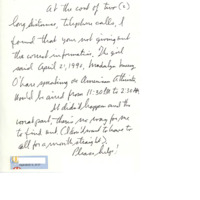 At the cost of two (2)
long distance, telephone calls, I
found that your not giving out
the correct information. The girl
said April 21, 1990, Madalyn Murray
O'hare speaking on American Atheists
would be aired from 11:30 AM to 2:30 AM
It didn't happen and the
worst part - there's no way for me
to find out (I don't want to have to
call for a month straight).
Please, help!